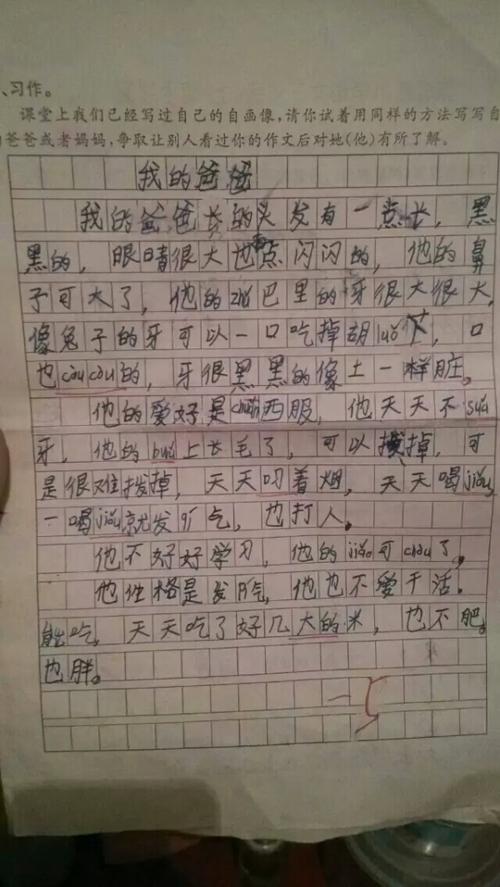 、习作。
课堂上我们已经写过自己的自画像,请你试着用同样的方法写写自
的爸爸或者妈妈,争取让别人看过你的作文后对她(他)有所了解。
我的爸爸
我的爸爸长的头发有一点长,黑
黑的,眼睛很大也点闪闪的,他的鼻
子可大了,他的zuǐ巴里的牙很大很大,
像兔子的牙可以一口吃掉胡luó卜,口
也còu còu的,牙很黑黑的像土一样脏。
他的爱好是chuān西服,他天天不suā
牙,他的 上长毛了,可以拨掉,可
是很难拨掉,天天叼着烟,天天喝jiǔ,
一喝jiǔ就发 气,也打人。
他不好好学习,他的jiǎo可chòu了,
他性格是发 ,他也不爱干活。
能吃,天天吃了好几大的米,也不肥。
也胖。